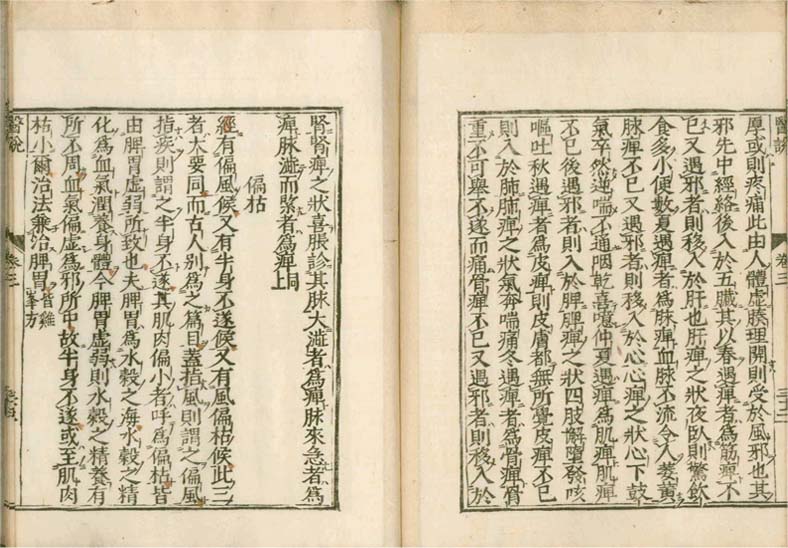 醫說
卷三
厚或則疼痛此由人體虛腠理開則受於風邪也其
邪先中經絡後入於五臟其以春遇痺者爲筋痺不
已又遇邪者則移入於肝也肝痺之狀夜臥則驚飲
食多小便數夏遇痺者爲脉痺血脉不流令人萎黃
脉痺不已又遇邪者則移入於心心痺之狀心下鼓
氣卒然逆喘不通咽乾喜噫仲夏遇痺爲肌痺肌痺
不已後遇邪者則入於脾脾痺之狀四肢懈墮發咳
嘔吐秋遇痺者爲皮痺則皮膚都無所覺皮痺不已
則入於肺肺痺之狀氣奔喘痛冬遇痺者爲骨痺骨
重不可舉不遂而痛骨痺不已又遇邪者則移入於
腎腎痺之狀喜脹診其脉大澁者爲痺脉來急者爲
痺脉澁而緊者爲痺同上
偏枯
經有偏風候又有半身不遂候又有風偏枯候此三
者大要同而古人別爲之篇目蓋指風則謂之偏風
指疾則謂之半身不遂其肌肉偏小者呼爲偏枯皆
由脾胃虛弱所致也夫脾胃爲水穀之海水穀之精
化爲血氣潤養身體今脾胃虛弱則水穀之精養有
所不周血氣偏虛爲邪所中故半身不遂或至肌肉
枯小爾治法兼治脾胃皆雞峯方
醫說
卷三